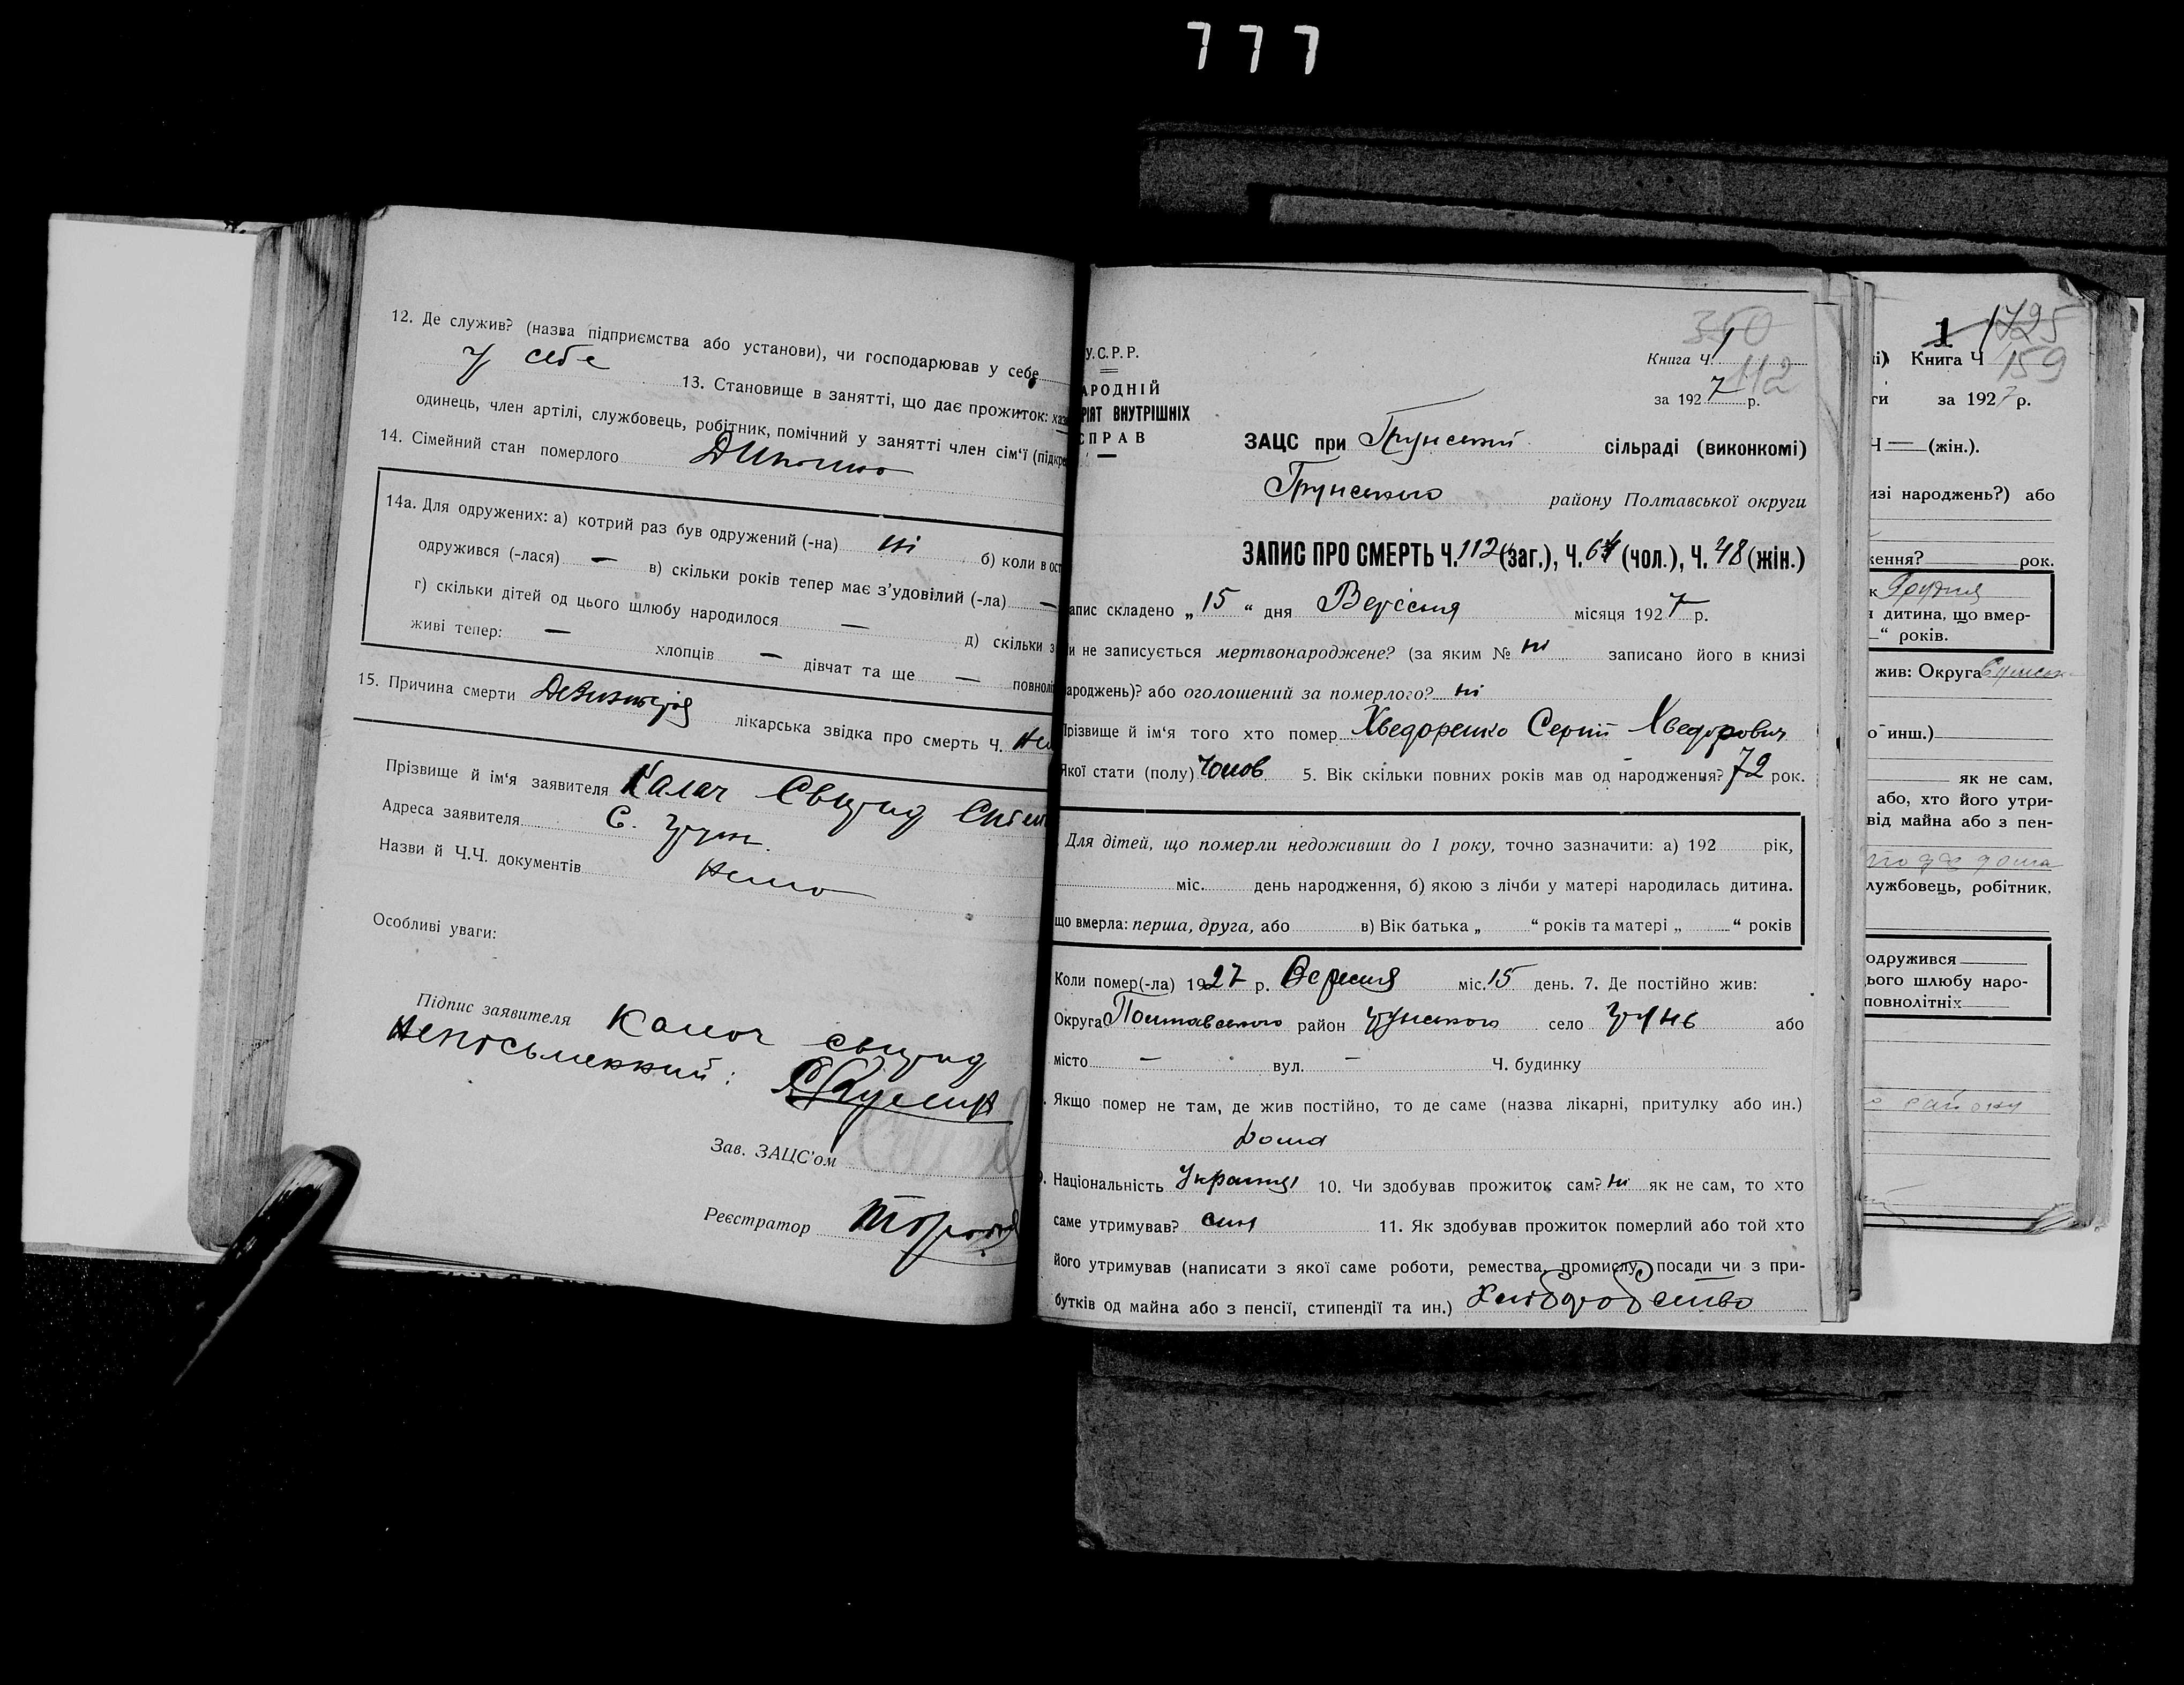 777
12. Де служив? (назва підприємства або установи), чи господарював у себе
у себе 13. Становище в занятті, що дає прожиток: хаз
одинець, член артілі, службовець, робітник, помічний у занятті член сім'ї (підкре
14. Сімейний стан померлого
14а. Для одружених: а) котрий раз був одружений (-на) ні б) коли в ост
одружився (-лася) — в) скільки років тепер має з'удовілий (-ла) —
г) скільки дітей од цього шлюбу народилося — д) скільки з
живі тепер: — хлопців — дівчат та ще — повноліт
15. Причина смерти Дезинтерія лікарська звідка про смерть Ч.
Прізвище й ім'я заявителя Калач Свирид
Адреса заявителя С. Грунь
Назви й Ч.Ч. документів нема
Особливі уваги:
Підпис заявителя Калач Свирид
Неписьменний:
Зав. ЗАЦС'ом
Реєстратор
У.С.Р.Р.
АРОДНІЙ
РІЯТ ВНУТРІШНІХ
СПРАВ
350
Книга Ч. 1
112
за 1927 р.
ЗАЦС при Грунський сільраді (виконкомі)
Грунського району Полтавської округи
ЗАПИС ПРО СМЕРТЬ Ч. 112 (заг.), Ч. 64 (чол.), Ч. 48 (жін.)
апис складено „15“ дня Вересня місяця 1927 р.
и не записується мертвонароджене? (за яким № ні записано його в книзі
ароджень)? або оголошений за померлого? ні
Прізвище й ім'я того хто помер Хведоренко Сергій Хведорович
Якої стати (полу) Чолов 5. Вік скільки повних років мав од народження? 72 рок.
Для дітей, що померли недоживши до 1 року, точно зазначити: а) 192 рік,
міс. день народження, б) якою з лічби у матері народилась дитина.
що вмерла: перша, друга, або в) Вік батька „ “ років та матері „ “ років
Коли помер(-ла) 1927 р. Вересня міс. 15 день. 7. Де постійно жив:
Округа Полтавського район Грунського село Грунь або
місто — вул. — Ч. будинку
Якщо помер не там, де жив постійно, то де саме (назва лікарні, притулку або ин.)
дома
9. Національність Українц 10. Чи здобував прожиток сам? ні як не сам, то хто
саме утримував? син 11. Як здобував прожиток померлий або той хто
його утримував (написати з якої саме роботи, ремества, промислу, посади чи з при-
бутків од майна або з пенсії, стипендії та ин.) Хліборобство
1 1725
і) Книга Ч 159
ги за 1927 р.
Ч — (жін.).
изі народжень?) або
ження? рок.
к Грудня
я дитина, що вмер-
“ років.
жив: Округа Сумськ
о инш.)
як не сам,
або, хто його утри-
від майна або з пен-
лужбовець, робітник,
одружився
ього шлюбу наро-
повнолітніх
району